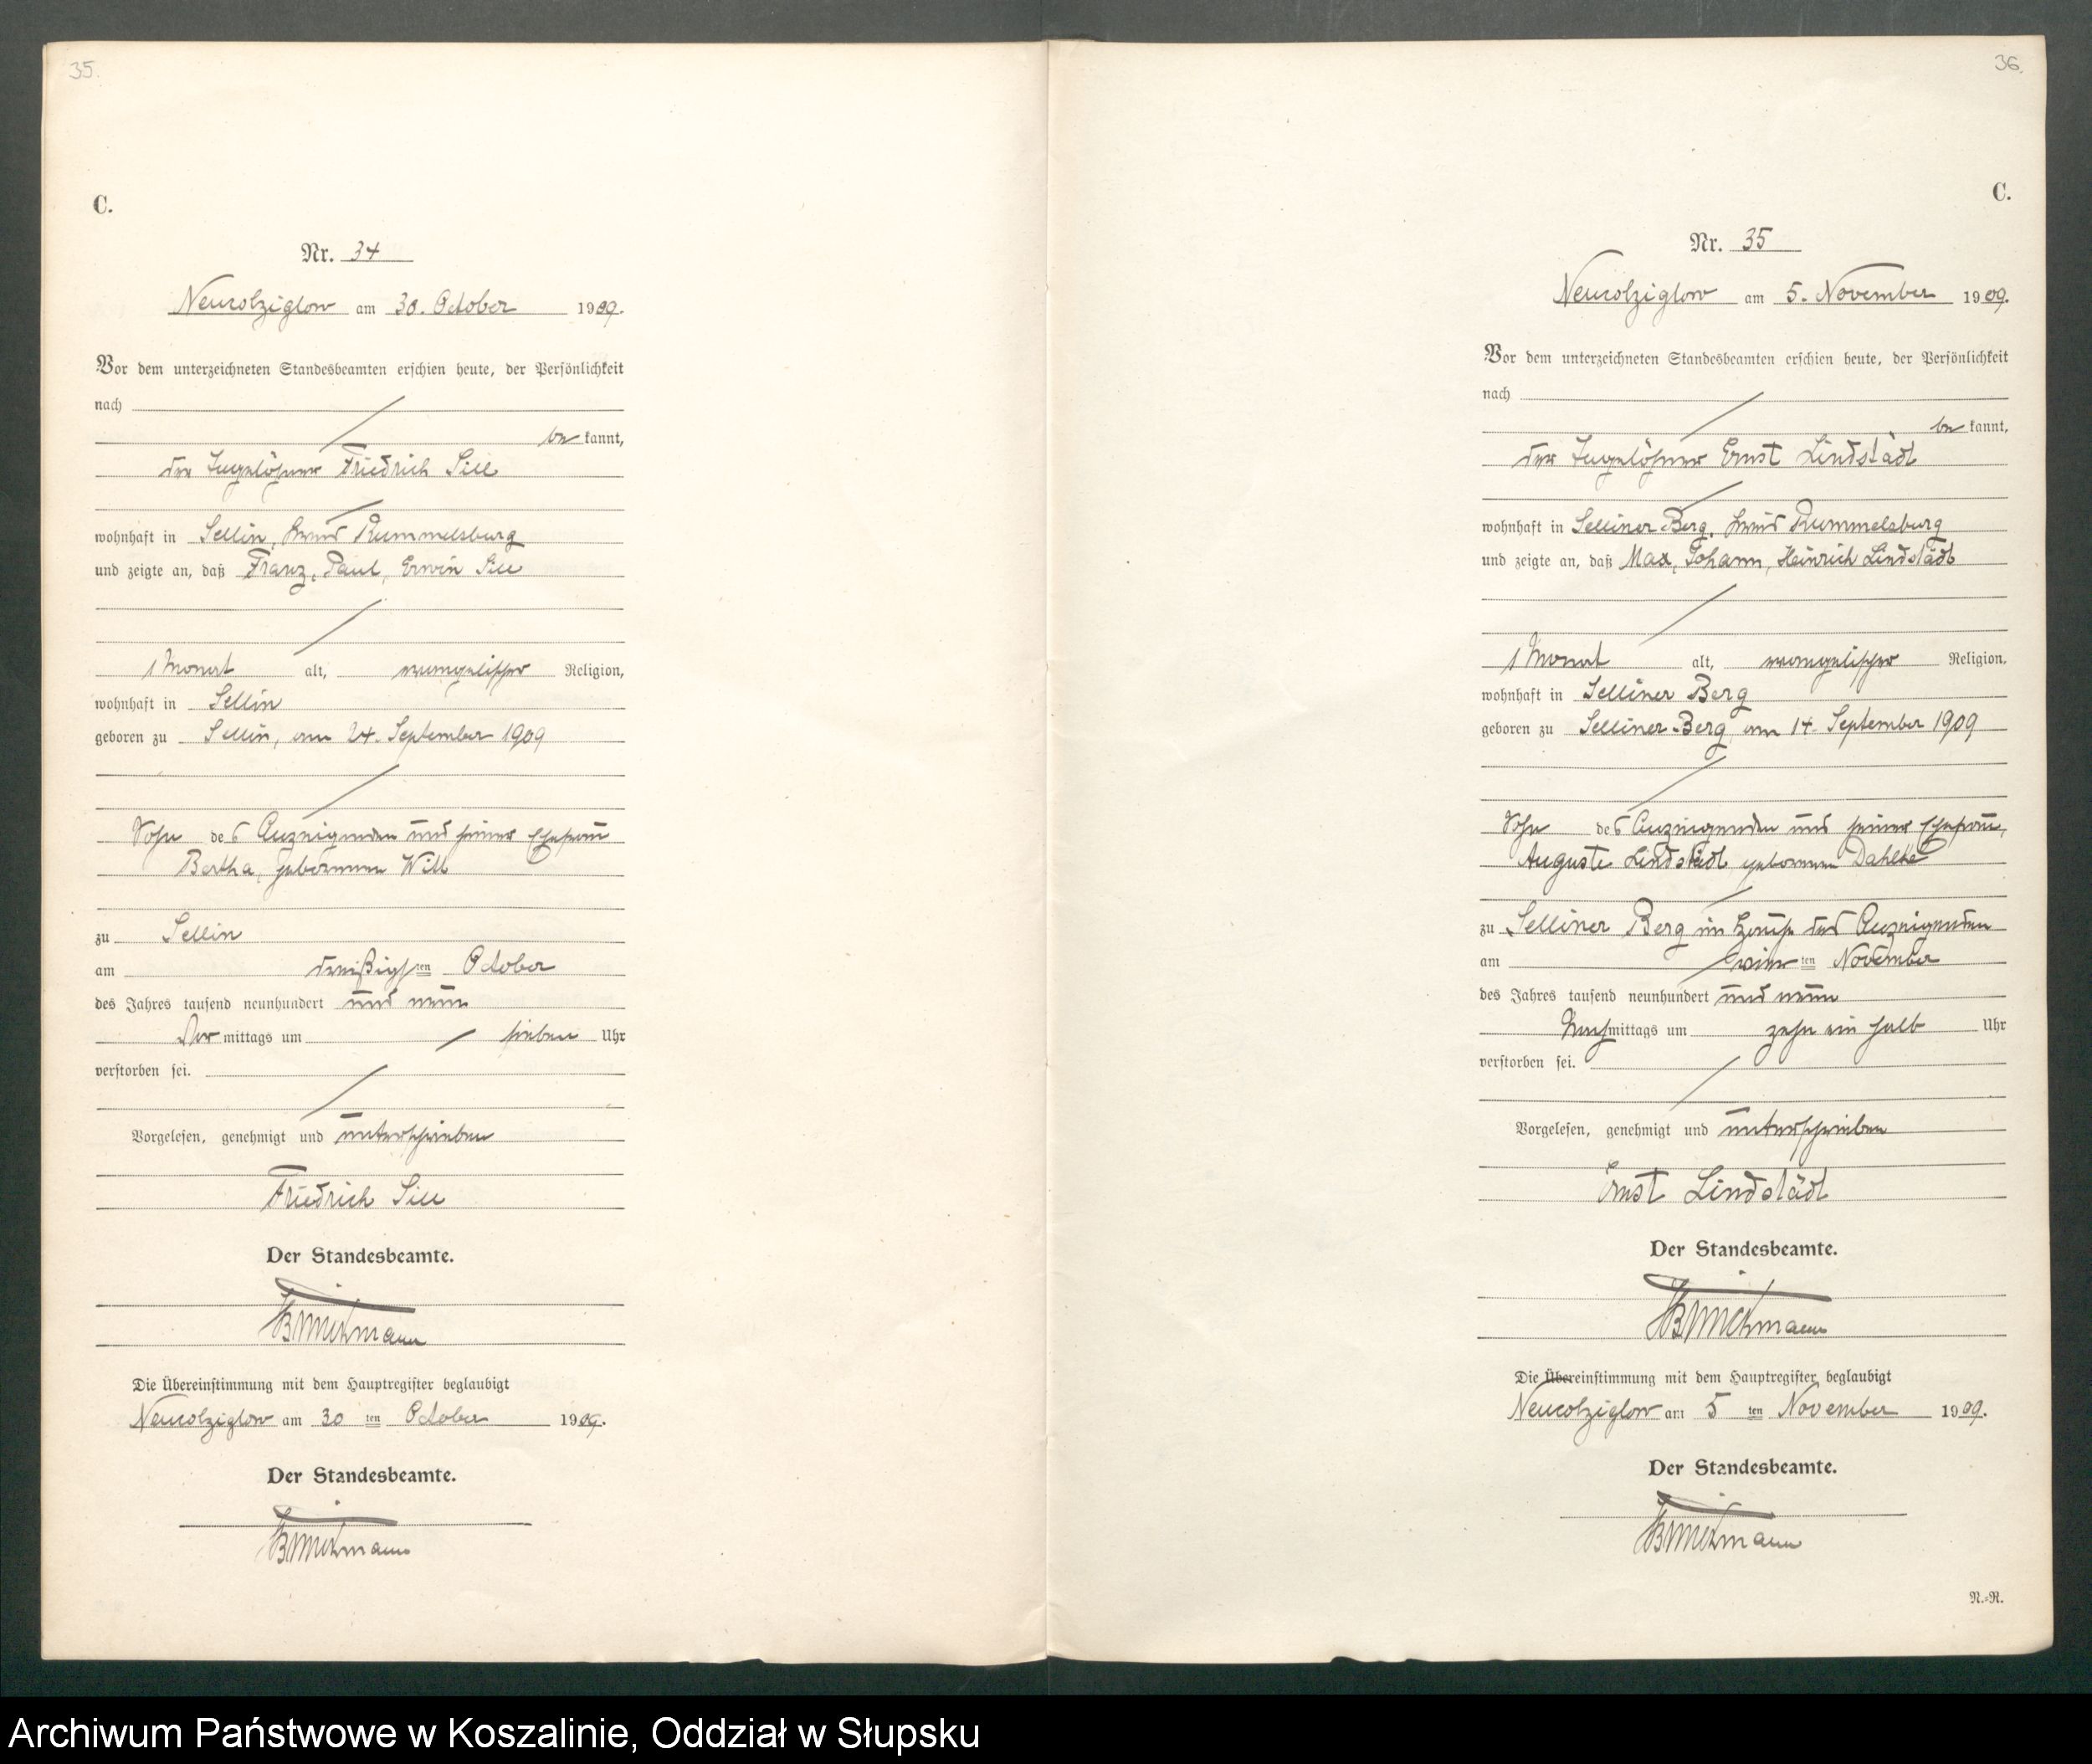 35.
C.
Nr. 34
Neukolziglow am 30. October 1909.
Vor dem unterzeichneten Standesbeamten erschien heute, der Persönlichkeit
nach
be kannt,
der Tagelöhner Friedrich Sill
wohnhaft in Sellin, Kreis Rummelsburg
und zeigte an, daß Franz, Paul, Erwin Sill
1 Monat alt, evangelischer Religion,
wohnhaft in Sellin
geboren zu Sellin, am 24. September 1909
Sohn des Anzeigenden und seiner Ehefrau
Bertha, geborenen Will
zu Sellin
am dreißigsten October
des Jahres tausend neunhundert und neun
Vor mittags um sieben Uhr
verstorben sei.
Vorgelesen, genehmigt und unterschrieben
Friedrich Sill
Der Standesbeamte.
Die Übereinstimmung mit dem Hauptregister beglaubigt
Neukolziglow am 30 ten October 1909.
Der Standesbeamte.
36.
C.
Nr. 35
Neukolziglow am 5. November 1909.
Vor dem unterzeichneten Standesbeamten erschien heute, der Persönlichkeit
nach
be kannt,
der Tagelöhner Ernst Lindstädt
wohnhaft in Selliner-Berg, Kreis Rummelsburg
und zeigte an, daß Max, Johann, Heinrich Lindstädt
1 Monat alt, evangelischer Religion,
wohnhaft in Selliner Berg
geboren zu Selliner-Berg, am 14. September 1909
Sohn des Anzeigenden und seiner Ehefrau,
Auguste Lindstädt geborenen Dahlke
zu Selliner Berg im Hause des Anzeigenden
am vierten November
des Jahres tausend neunhundert und neun
Nachmittags um zehn ein halb Uhr
verstorben sei.
Vorgelesen, genehmigt und unterschrieben
Ernst Lindstädt
Der Standesbeamte.
Die Übereinstimmung mit dem Hauptregister beglaubigt
Neukolziglow am 5 ten November 1909.
Der Standesbeamte.
N.-R.
Archiwum Państwowe w Koszalinie, Oddział w Słupsku